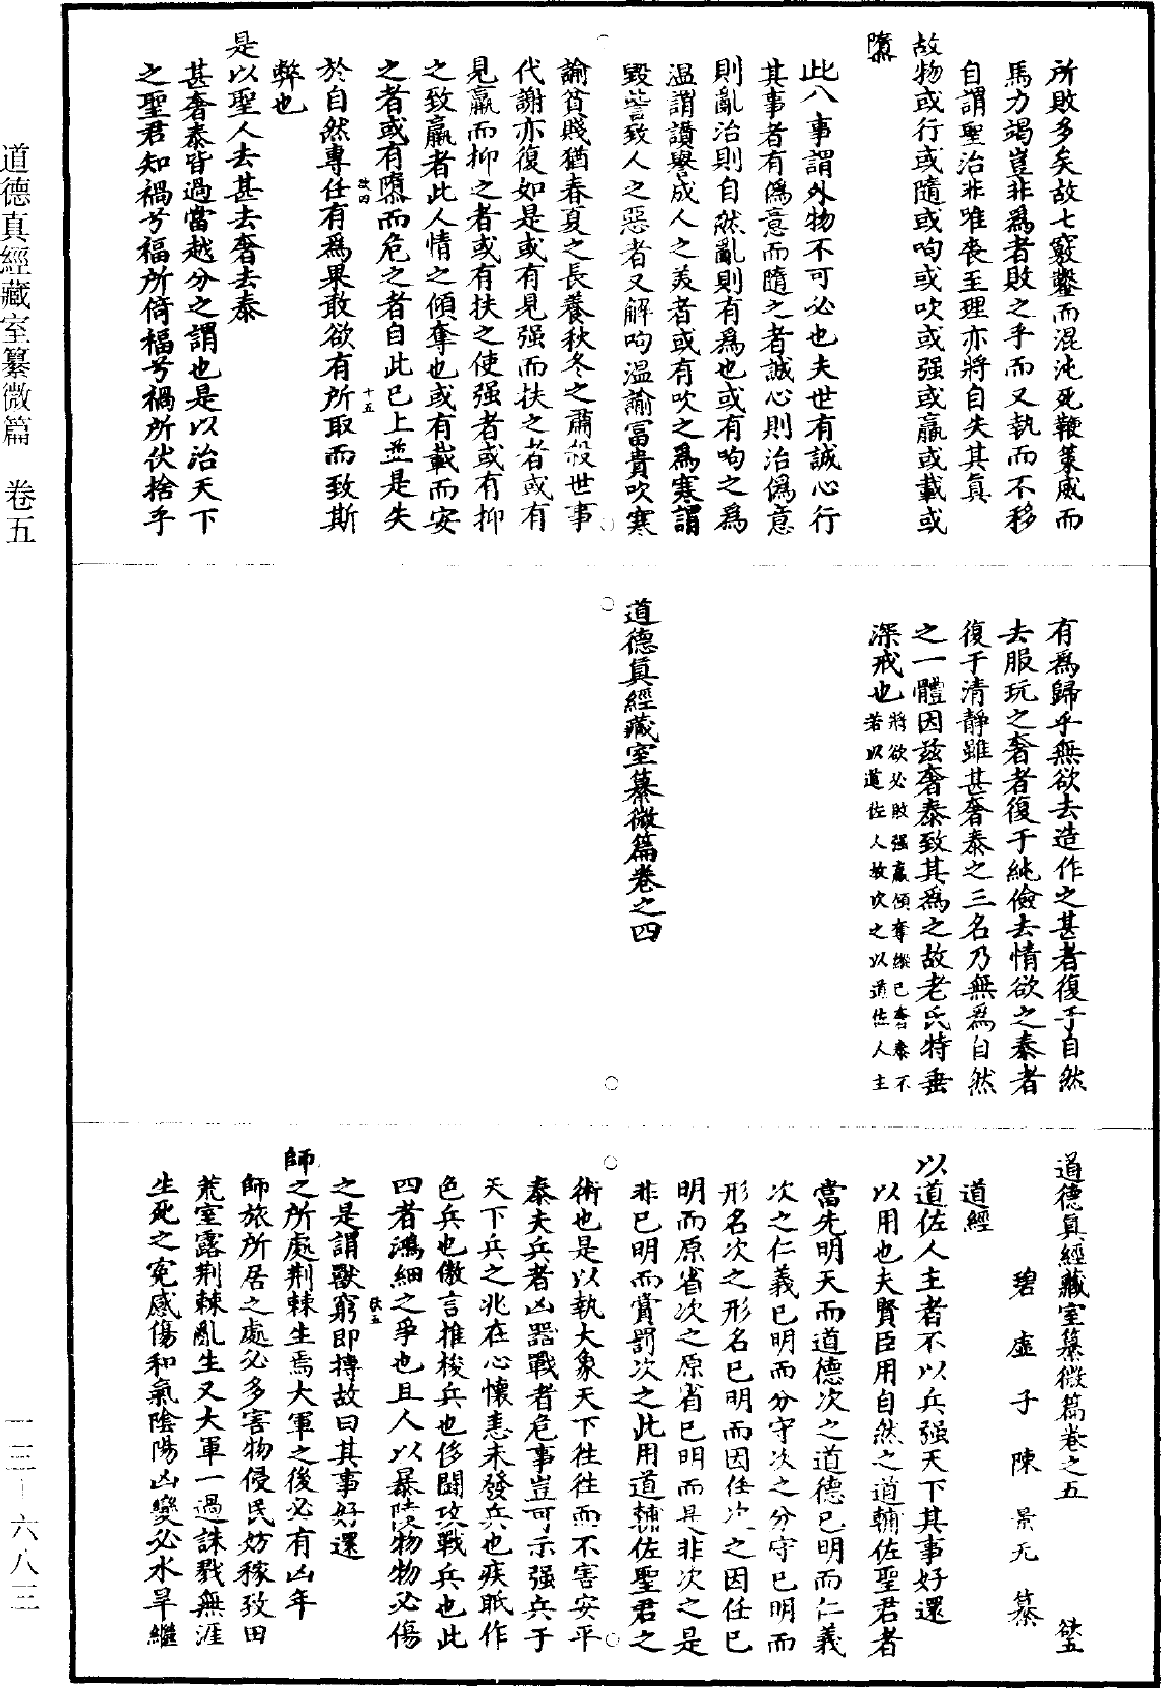 所敗多矣故七竅鑿而混沌死鞭策威而
馬力竭豈非爲者敗之乎而又執而不移
自謂聖治非唯喪至理亦將自失其眞
故物或行或隨或呴或吹或强或羸或載或
隳
此八事謂外物不可必也夫世有誠心行
其事者有僞意而隨之者誠心則治僞意
則亂治則自然亂則有爲也或有呴之爲
溫謂讚譽成人之美者或有吹之爲寒謂
毀訾致人之惡者又解呴溫諭富貴吹寒
諭貧賤猶春夏之長養秋冬之肅殺世事
代謝亦復如是或有見强而扶之者或有
見羸而抑之者或有扶之使强者或有抑
之致羸者此人情之傾奪也或有載而安
之者或有隳而危之者自此已上並是失
欲四
十五
於自然專任有爲果敢欲有所取而致斯
弊也
是以聖人去甚去奢去泰
甚奢泰皆過當越分之謂也是以治天下
之聖君知禍兮福所倚福兮禍所伏捨乎
有爲歸乎無欲去造作之甚者復于自然
去服玩之奢者復于純儉去情欲之泰者
復于清靜雖甚奢泰之三名乃無爲自然
之一體因玆奢泰致其爲之故老氏特垂
深戒也將欲必敗强羸傾奪縱已奢泰不
若以道佐人故次之以道佐人主
道德眞經藏室纂微篇卷之四
道德眞經藏室纂微篇卷之五
欲五
碧虛子陳景元纂
道經
以道佐人主者不以兵强天下其事好還
以用也夫賢臣用自然之道輔佐聖君者
當先明天而道德次之道德已明而仁義
次之仁義已明而分守次之分守已明而
形名次之形名已明而因任次之因任已
明而原省次之原省已明而是非次之是
非已明而賞罰次之此用道輔佐聖君之
術也是以執大象天下往往而不害安平
泰夫兵者凶器戰者危事豈可示强兵于
天下兵之兆在心懷恚未發兵也疾眡作
色兵也傲言推梭兵也侈鬭攻戰兵也此
四者鴻細之爭也且人以暴陵物物必傷
欲五
之是謂獸窮即搏故曰其事好還
師之所處荆棘生焉大軍之後必有凶年
師旅所居之處必多害物侵民妨稼致田
荒室露荆棘亂生又大軍一過誅戮無涯
生死之寃感傷和氣陰陽凶變必水旱繼
道德真經藏室纂微篇 卷五
一三—六八三